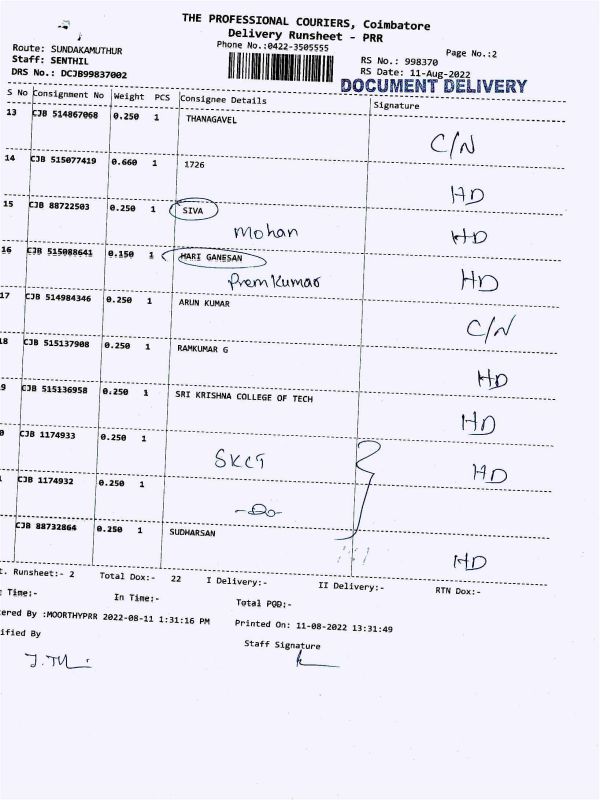 THE PROFESSIONAL COURIERS, Coimbatore
Delivery Runsheet - PRR
Phone No.:0422-3505555
Page No.:2
Route: SUNDAKAMUTHUR
Staff: SENTHIL
DRS No.: DCJB99837002
RS No.: 998370
RS Date: 11-Aug-2022
DOCUMENT DELIVERY
S No Consignment No Weight PCS Consignee Details Signature
13 CJB 514867068 0.250 1 THANAGAVEL
C/N
14 CJB 515077419 0.660 1 1726
HD
15 CJB 88722503 0.250 1 SIVA
Mohan HD
16 CJB 515088641 0.150 1 HARI GANESAN
Prem Kumar HD
17 CJB 514984346 0.250 1 ARUN KUMAR
C/N
18 CJB 515137908 0.250 1 RAMKUMAR G
HD
9 CJB 515136958 0.250 1 SRI KRISHNA COLLEGE OF TECH
HD
0 CJB 1174933 0.250 1
SKCT HD
CJB 1174932 0.250 1
-Do-
CJB 88732864 0.250 1 SUDHARSAN
HD
t. Runsheet:- 2 Total Dox:- 22 I Delivery:- II Delivery:- RTN Dox:-
Time:- In Time:- Total POD:-
ered By :MOORTHYPRR 2022-08-11 1:31:16 PM Printed On: 11-08-2022 13:31:49
ified By Staff Signature